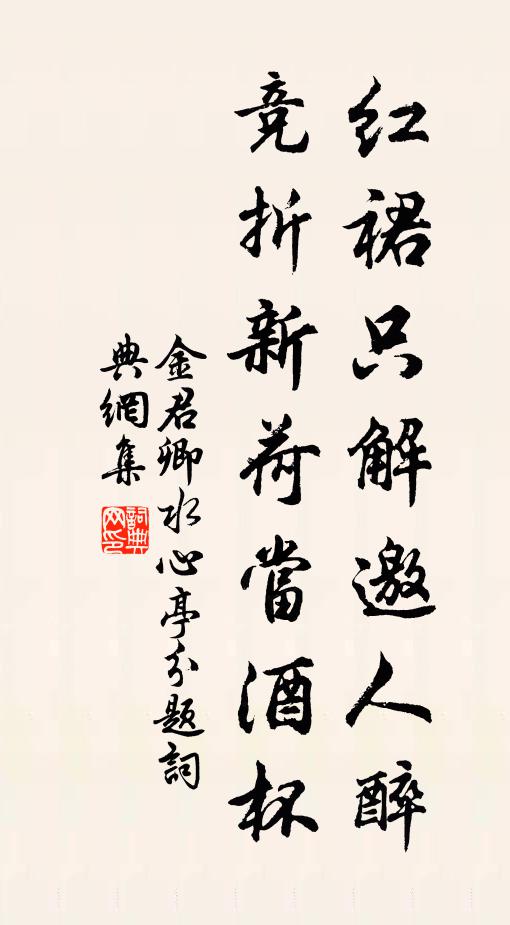 紅裙只解邀人醉
競折新荷當酒杯
金君卿水心亭分題詞
典網集
詞典网印